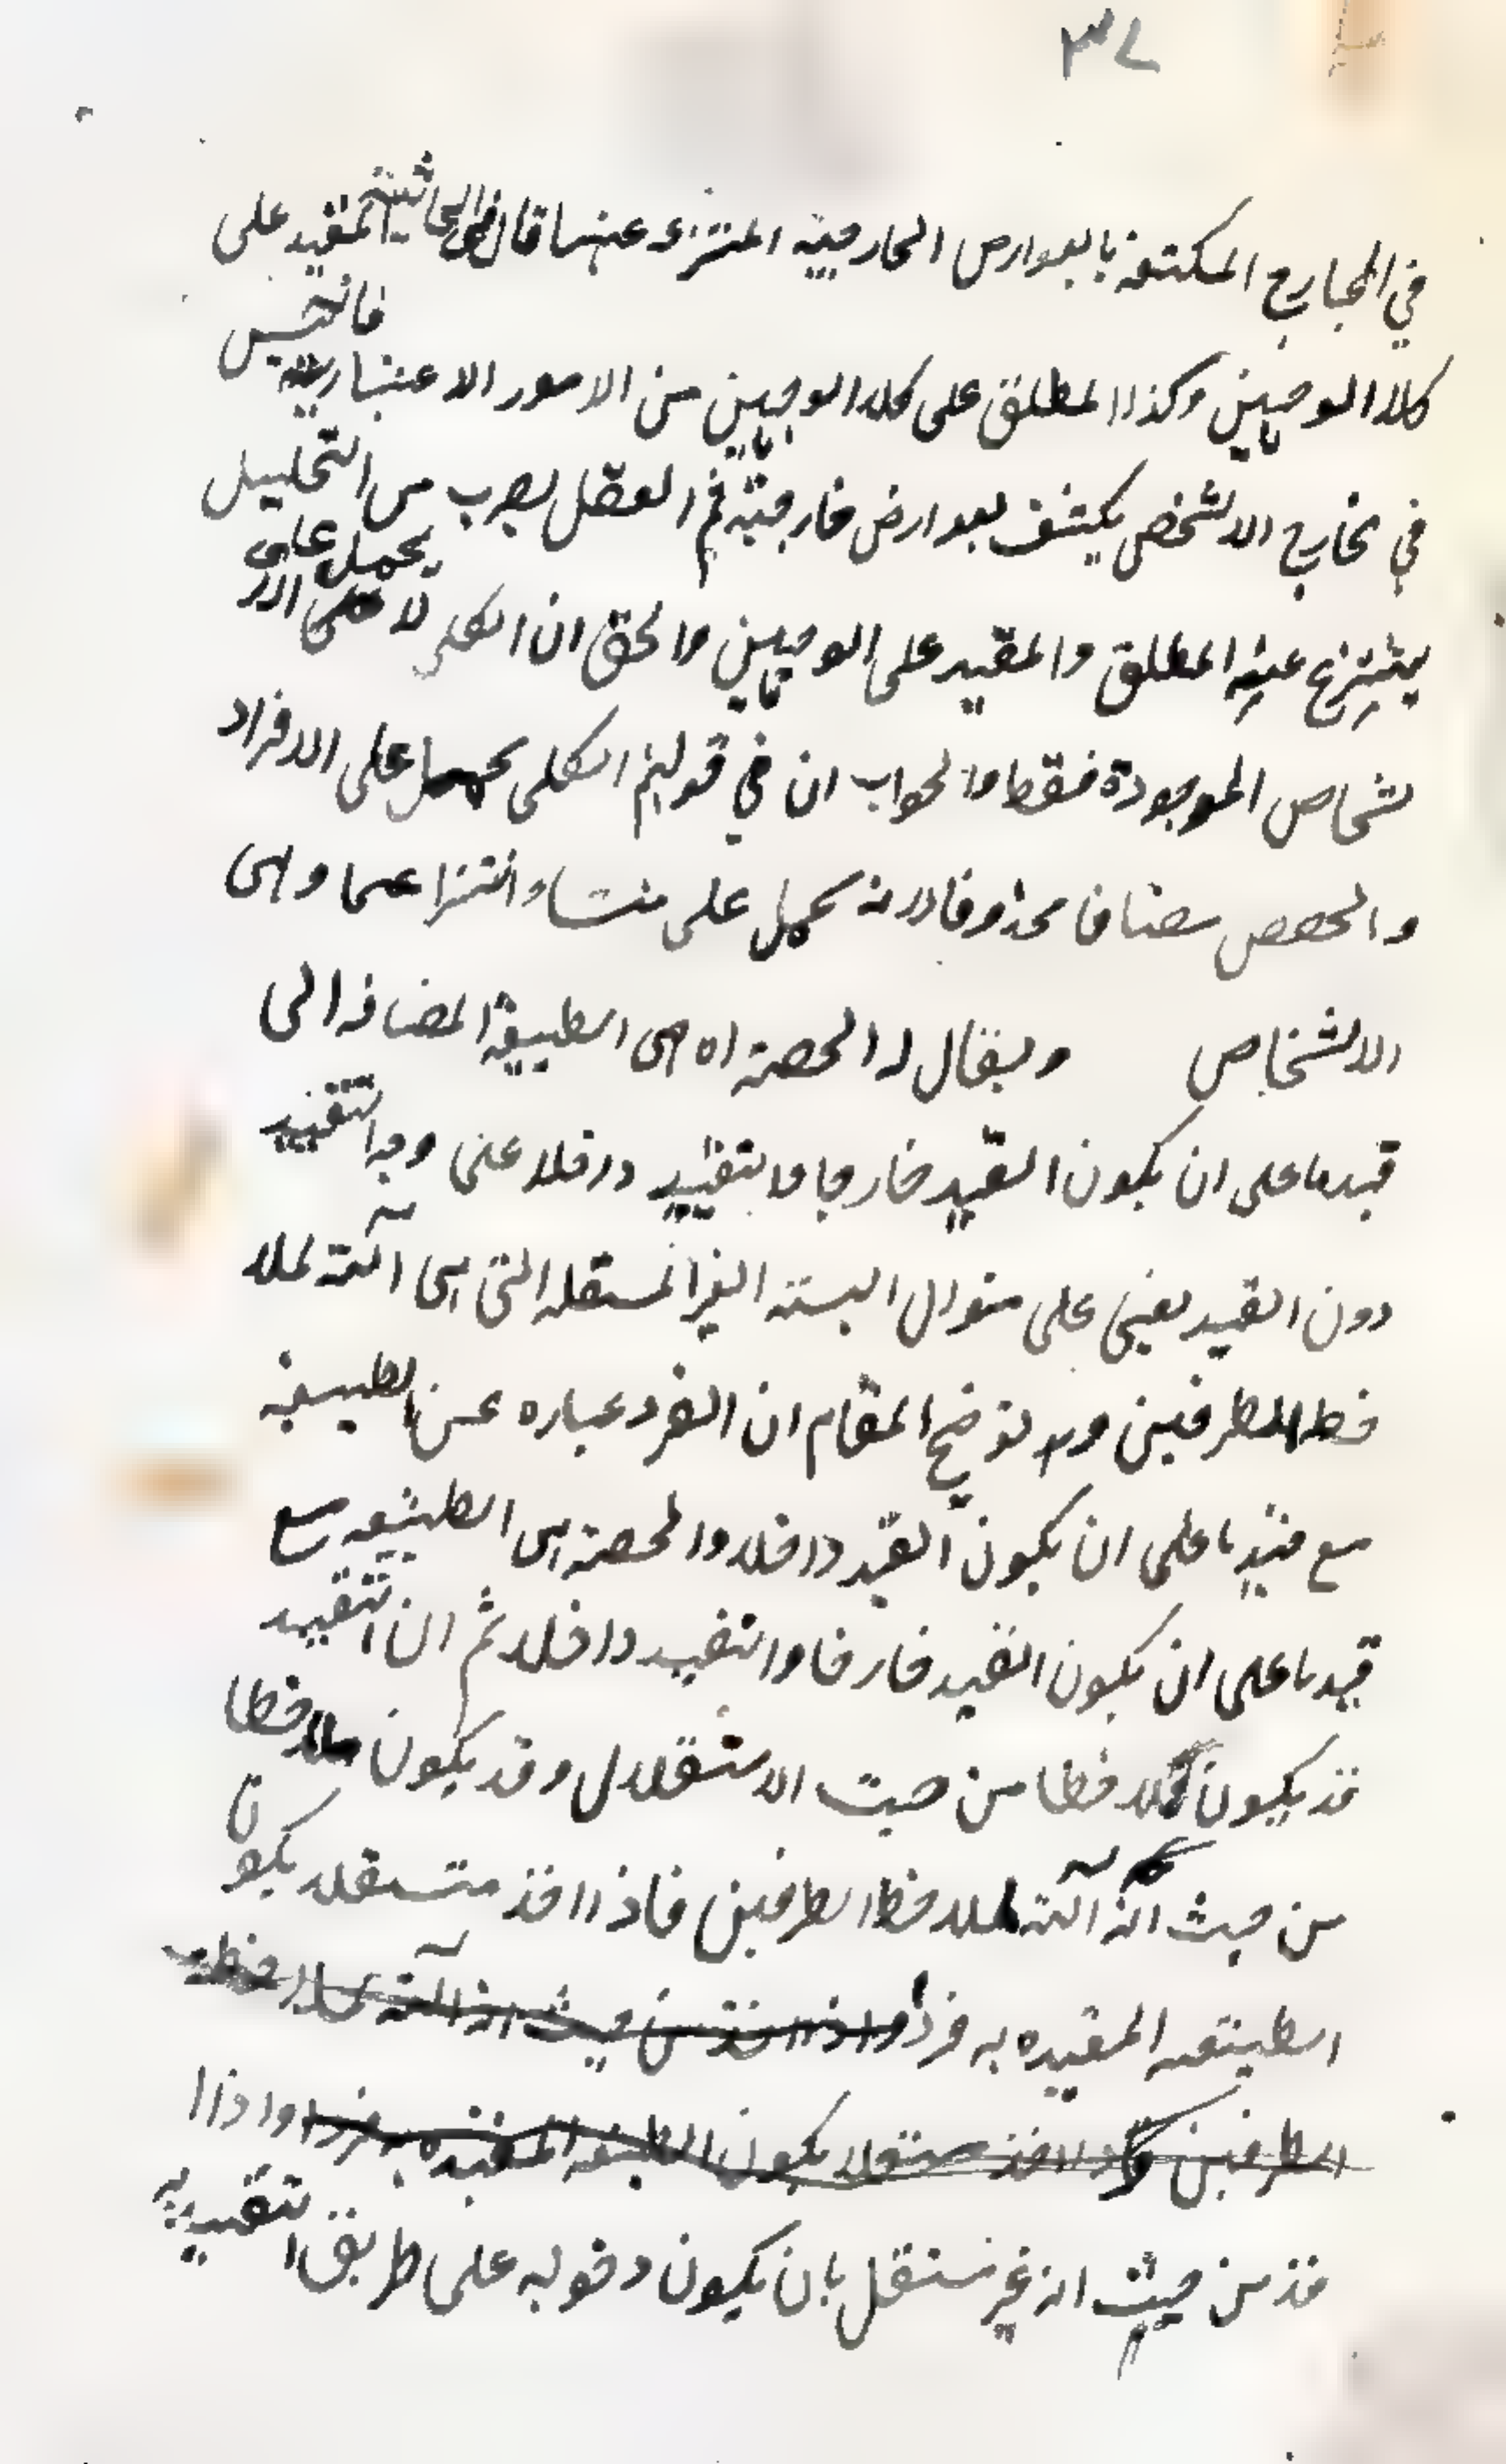 ٣٧
في الخارج المكتنفة بالعوارض الخارجية المنتزعة عنها قال في الحاشية المقيد على
كلا الوجهين وكذا المطلق على كلا الوجهين من الامور الاعتبارية فانه ليس
في الخارج الا شخص يكتنف بعوارض خارجية ثم العقل بضرب من التحليل
ينتزع عنه المطلق والمقيد على الوجهين والحق ان الكلي لا يحمل على الا
شخاص الموجودة فقط والجواب ان في قولهم الكلي يحمل على الافراد
والحصص مضافا محذوفا لانه يحمل على منشاء انتزاعهما وهى
الاشخاص ويقال له الحصة اه هى الطبيعة المضافة الى
قيد ما على ان يكون القيد خارجا والتقييد داخلا على وجه التقييد
دون القيد يعني على منوال النسبة الغير المستقلة التي هى آلة لملا
حظة الطرفين و توضيح المقام ان الفرد عبارة عن الطبيعة
مع قيد ما على ان يكون القيد داخلا والحصة هى الطبيعة مع
قيد ما على ان يكون القيد خارجا والتقييد داخلا ثم ان التقييد
قد يكون ملاحظا من حيث الاستقلال وقد يكون ملاحظا
من حيث انه آلة لملاحظة الطرفين فاذا اخذ مستقلا يكون
الطبيعة المقيدة به فردا واذا اخذ من حيث انه آلة لملاحظة
الطرفين اخذ مستقلا يكون الطبيعة المقيدة به فردا واذا ا
خذ من حيث انه غير مستقل بان يكون دخوله على طريق التقييدية